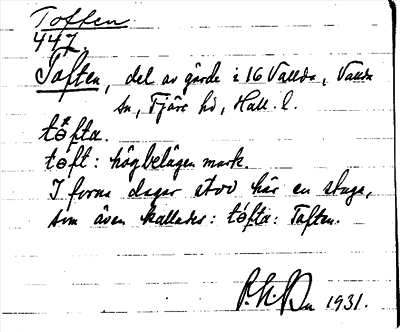 Toften
447.
Toften, del av gärde i 16 Vallda, Vallda
sn, Fjäre hd, Hall. l.
tǒfta.
tǒft: högbelägen mark.
I forna dagar stod här en stuga,
som även kallades: tǒfta: Toften.
1931.